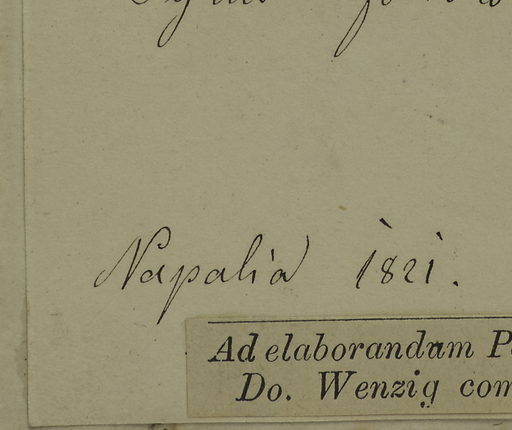 Napalia 1821.
Ad elaborandam P
Do. Wenzig com